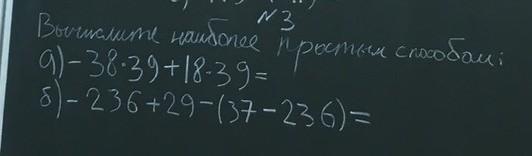 №3
Вычислите наиболее простым способом:
а) -38·39+18·39=
б) -236+29-(37-236)=